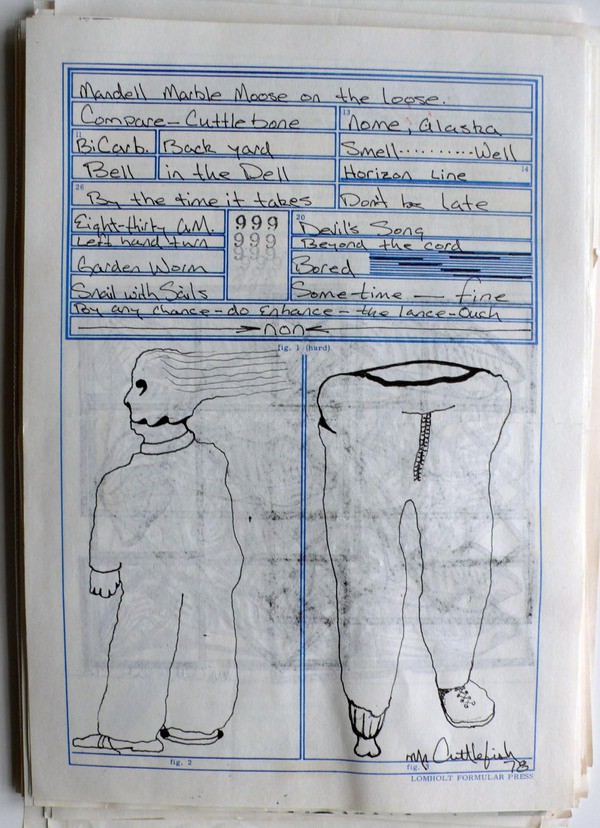 Mandell Marble Moose on the loose.
Compare-Cuttlebone
13
Nome, Alaska
11
BiCarb.
Back yard
Smell..........Well
Bell
in the Dell
Horizon Line
14
26
By the time it takes
Don't be late
Eight-thirty A.M.
999
20
Devil's Song
Left hand turn
999
Beyond the cord
Garden Worm
999
Bored
Snail with Sails
Some-time — fine
By any chance-do Enhance-the lance-Ouch
non
fig. 1 (hard)
Cuttlefish
78
fig. 2
fig.
LOMHOLT FORMULAR PRESS